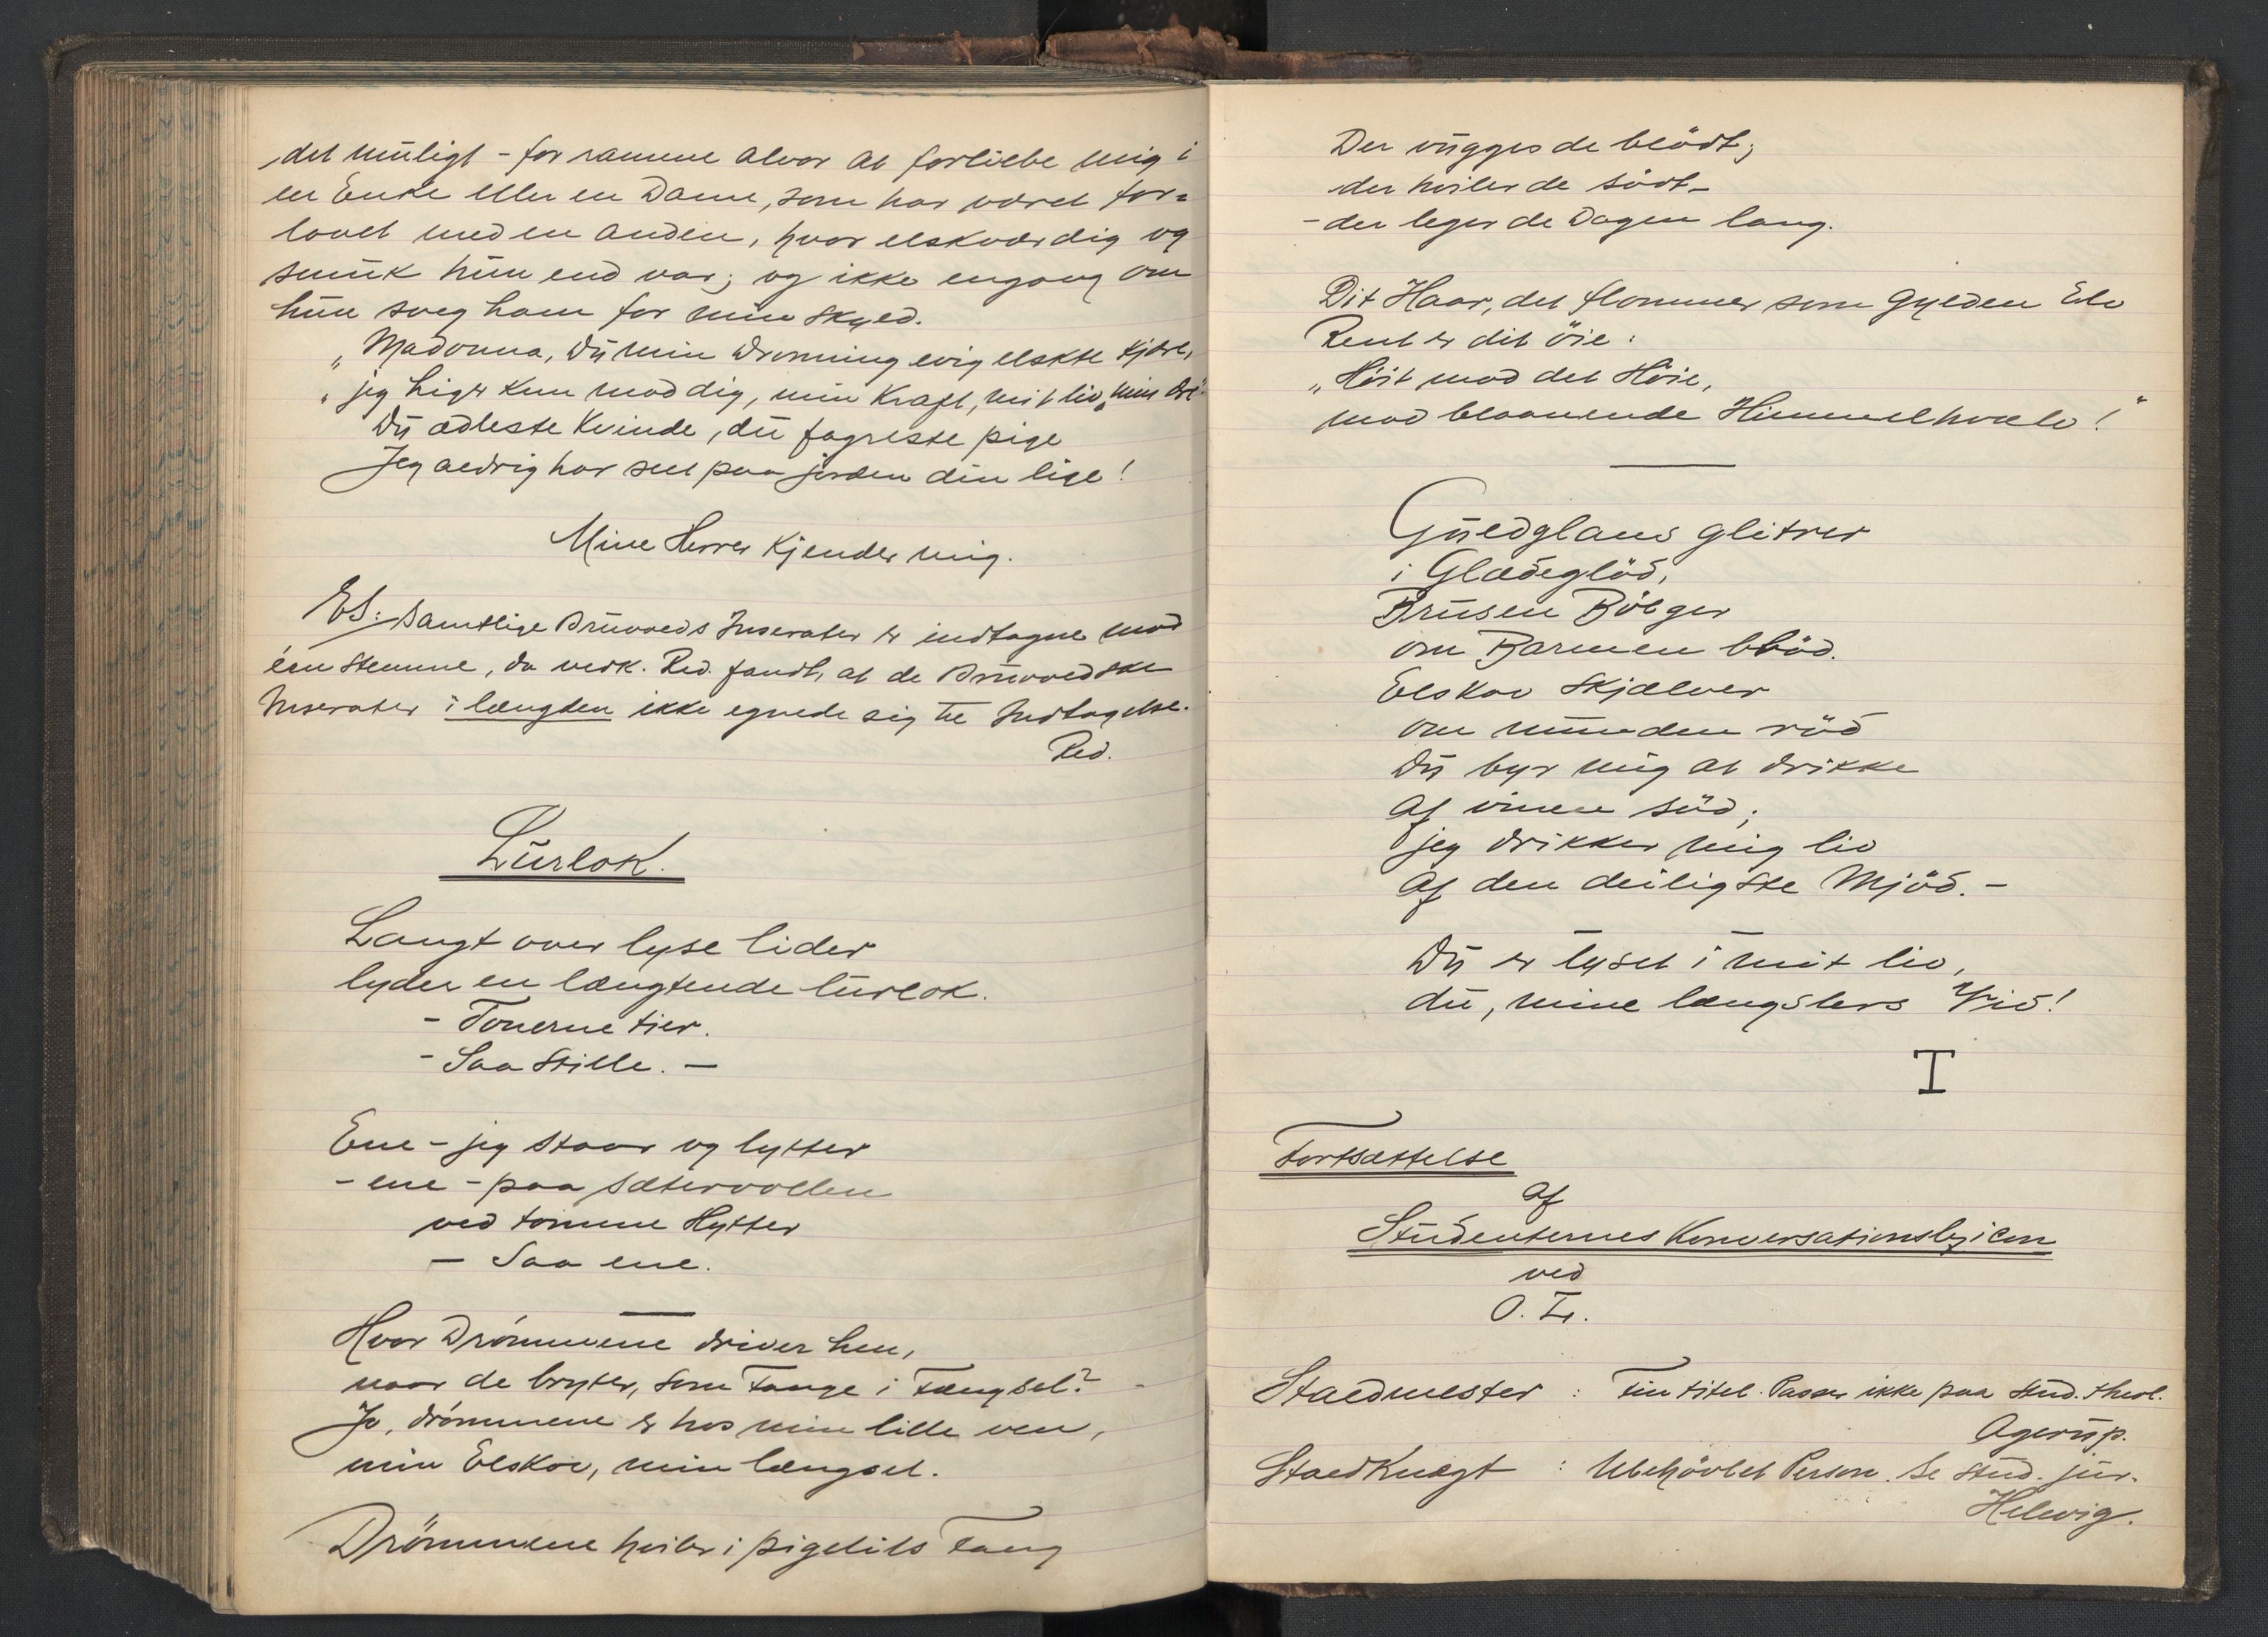 det muligt - for ramme alvor at forliebe mig i
en Enke eller en Dame, som har været for=
lovet med en anden, hvor elskværdig og
smuk hun end var; og ikke engang om
hun sveg ham for min skyld.
„Madonna, Du min Dronning evig elskte kjære,
„jeg higer kun mod dig, min Kraft, mit liv, min
Du ædleste Kvinde, du fagreste pige
Jeg aldrig har seet paa jorden din lige!
Mine Herrer kjender mig.
Samtlige Bruvolds Inserater er indtagne mod
een stemme, da verk. Red. fandt, at de Bruvoldske
Inserater i længden ikke egnede sig til Indtagelse.
Red.
Lurlok.
Langt over lyse lider
lyder en længtende lurlok.
- Tonerne tier.
- Saa stille. -
Ene - jeg staar og lytter
- ene - paa sætervollen
ved tomme Hytter
- Saa ene.
Hvor Drømmene driver hen,
naar de bryter, som Fange i Fængsel?
Jo, drømmene er hos min lille ven,
min Elskov, min længsel.
Drömmene hviler i pigelils Fang
Der vugges de blödt;
der hviler de södt -
- der leger de Dagen lang.
Dit Haar, det flommer som gylden Elv
Rent er dit öie:
„Höit mod det Höie,
mod blaanende Himmelhvælv!"
Guldglans glitrer
i Glædeglöd,
Brusen Bölger
om Barmen blöd.
Elskov skjælver
om munden röd
Du byr mig at drikke
af vinen söd;
jeg drikker mig liv
af den deiligste Mjöd. -
Du er lyset i mit liv,
du, mine længslers Viv!
T
Fortsættelse
af
Studenternes Konversationslexicon
ved
O. Tr.
Staldmester : Fin titel. Passer ikke paa stud. theol.
Agerup.
Staldknægt : Ubehövlet Person. Se stud. jur.
Helwig.